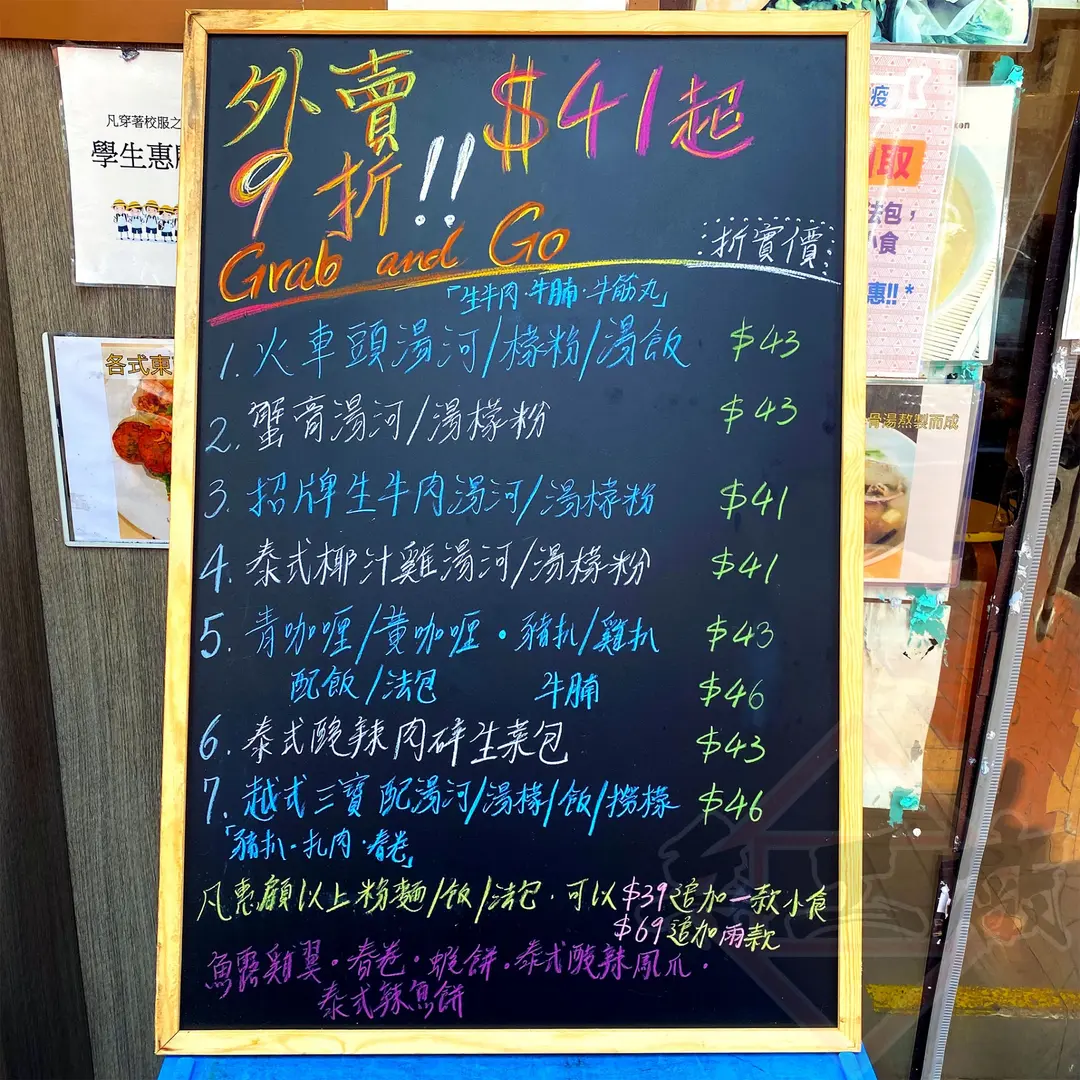 外賣 $41起
9折!!
Grab and Go
折實價
「生牛肉·牛腩·牛筋丸」
1. 火車頭湯河/檬粉/湯飯 $43
2. 蟹膏湯河/湯檬粉 $43
3. 招牌生牛肉湯河/湯檬粉 $41
4. 泰式椰汁雞湯河/湯檬粉 $41
5. 青咖喱/黄咖喱·豬扒/雞扒 $43
配飯/法包 牛腩 $46
6. 泰式酸辣肉碎生菜包 $43
7. 越式三寶配湯河/湯檬/飯/撈檬 $46
「豬扒·扎肉·春卷」
凡惠顧以上粉麵/飯/法包,可以$39追加一款小食
$69追加兩款
魚露雞翼·春卷·蝦餅·泰式酸辣鳳爪·
泰式辣魚餅
凡穿著校服之
學生惠
各式東
疫
取
法包，
小食
惠!! *
骨湯熬製而成